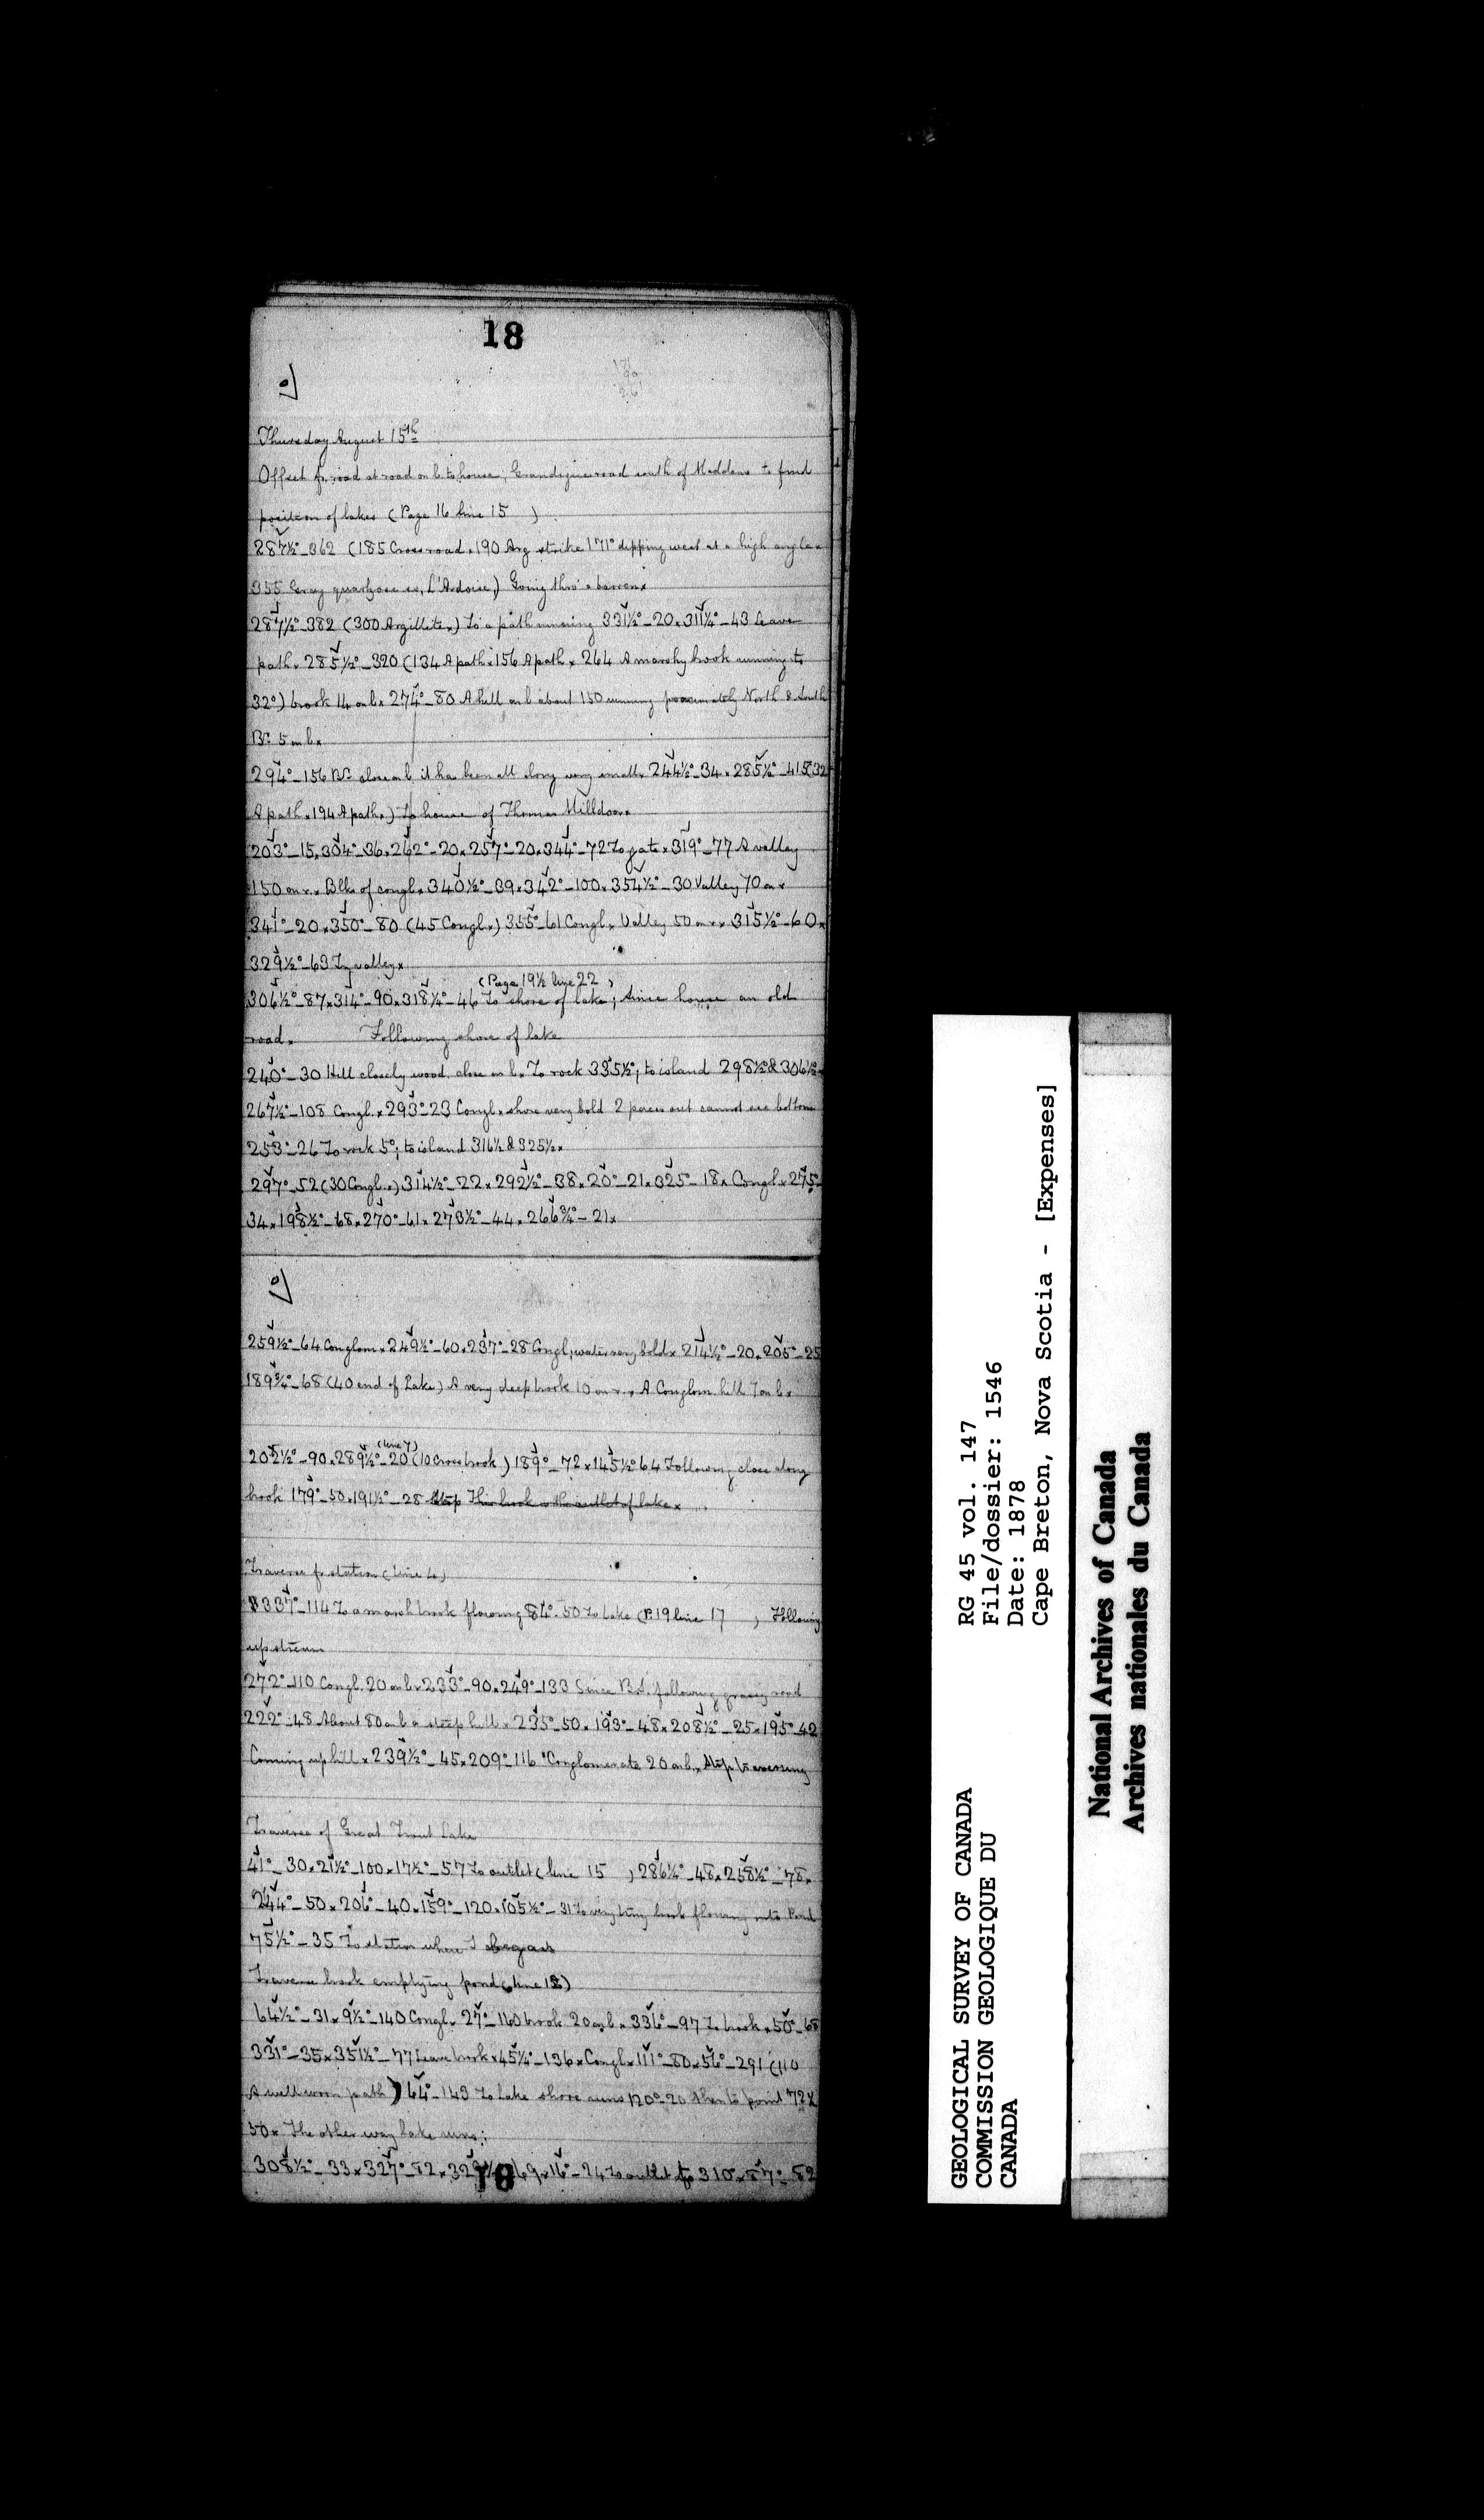 18
Thursday August 15th
Offset fr. road at road on l. to house, Grandique road south of Maddens to find
position of lakes (Page 16 line 15 )
287½°_362 (185 Cross road x 190 Arg strike 171° dipping west at a high angle x
355 Gray quartzose ss, L'Ardoise,) Going thro' a barren x
287½°_382 (300 Argillite x) To a path running 331½°_20 x 311¼°_43 Leave
path x 285½°_320 (134 A path x 156 A path x 264 A marshy brook running to
32°) brook 14 on l x 274°_80 A hill on l about 150 running proximately North & South
Bk 5 on l x
294°_156 Bk close on l, it has been all along very small x 244½°_34 x 285½°_415 (32
A path x 194 A path x) To house of Thomas Milldoor x
203°_15 x 304°_36 x 262°_20 x 257°_20 x 344°_72 To gate x 319°_77 A valley
150 on r. x Blks of congl x 340½°_39 x 342°_100 x 354½°_30 Valley 70 on r
341°_20 x 350°_80 (45 Congl x) 355°_61 Congl x Valley 50 on r x 315½°_60 x
329½°_63 In valley x
(Page 19½ line 22 )
306½°_87 x 314°_90 x 318¼°_46 To shore of lake; since house an old
road. Following shore of lake
240°_30 Hill closely wood close on l x To rock 335½°; to island 298½° & 306½°
267½°_108 Congl. x 293°_23 Congl x shore very bold 2 paces out cannot see bottom
253°_26 To rock 5°; to island 316½ & 325½ x
297°_52 (30 Congl x) 314½°_22 x 292½°_38 x 20°_21 x 325°_18 x Congl x 275°_
34 x 198½°_68 x 270°_61 x 273½°_44 x 266¾°_21 x
259½°_64 Conglom x 249½°_60 x 237°_28 Congl, water very bold x 214½°_20 x 205°_25
189¾°_68 (40 end of Lake) A very deep brook 10 on r. x A Conglom. hill 7 on l x
(line 7)
202½°_90 x 289½°_20 (10 Cross brook) 189°_72 x 145½° 64 Following close along
brook 179°_50 x 191½°_28 Stop This brook is the outlet of lake x
Traverse fr station (line 4)
337°_114 To a marsh brook flowing 84°_50 To Lake (P. 19 line 17 ) Following
up stream
272°_110 Congl. 20 on l x 233°_90 x 249°_133 Since following grassy road
222°_48 About 80 on l a steep hill x 235°_50 x 193°_48 x 208½°_25 x 195°_42
Coming up hill x 239½°_45 x 209°_116 Conglomerate 20 on l x Stop traversing
Traverse of Great Trout Lake
41°_30 x 21½°_100 x 17½°_57 To outlet (line 15 ) 286¼°_48 x 258½°_78 x
244°_50 x 206°_40 x 159°_120 x 105½°_31 To very tiny brook flowing into Pond
75½°_35 To station where I began
Traverse brook emptying pond (line 12)
64½°_31 x 9½°_140 Congl x 27°_160 brook 20 on l x 336°_97 To brook x 50°_68
331°_35 x 351½°_77 Leave brook x 45¼°_136 x Congl x 111°_80 x 56°_291 (110
A well worn path) 64°_143 To Lake shore runs 120°_20 then to point 72 x
50 x The other way lake runs:
308½°_33 x 327°_82 x 69 x 16°_24 To outlet 310 x 87°_82
18
GEOLOGICAL SURVEY OF CANADA
COMMISSION GEOLOGIQUE DU
CANADA
RG 45 vol. 147
File/dossier: 1546
Date: 1878
Cape Breton, Nova Scotia - [Expenses]
National Archives of Canada
Archives nationales du Canada